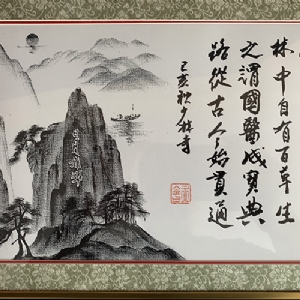 林中自有百草生
之謂國醫成寶典
路從古人始貫通
己亥秋少林寺